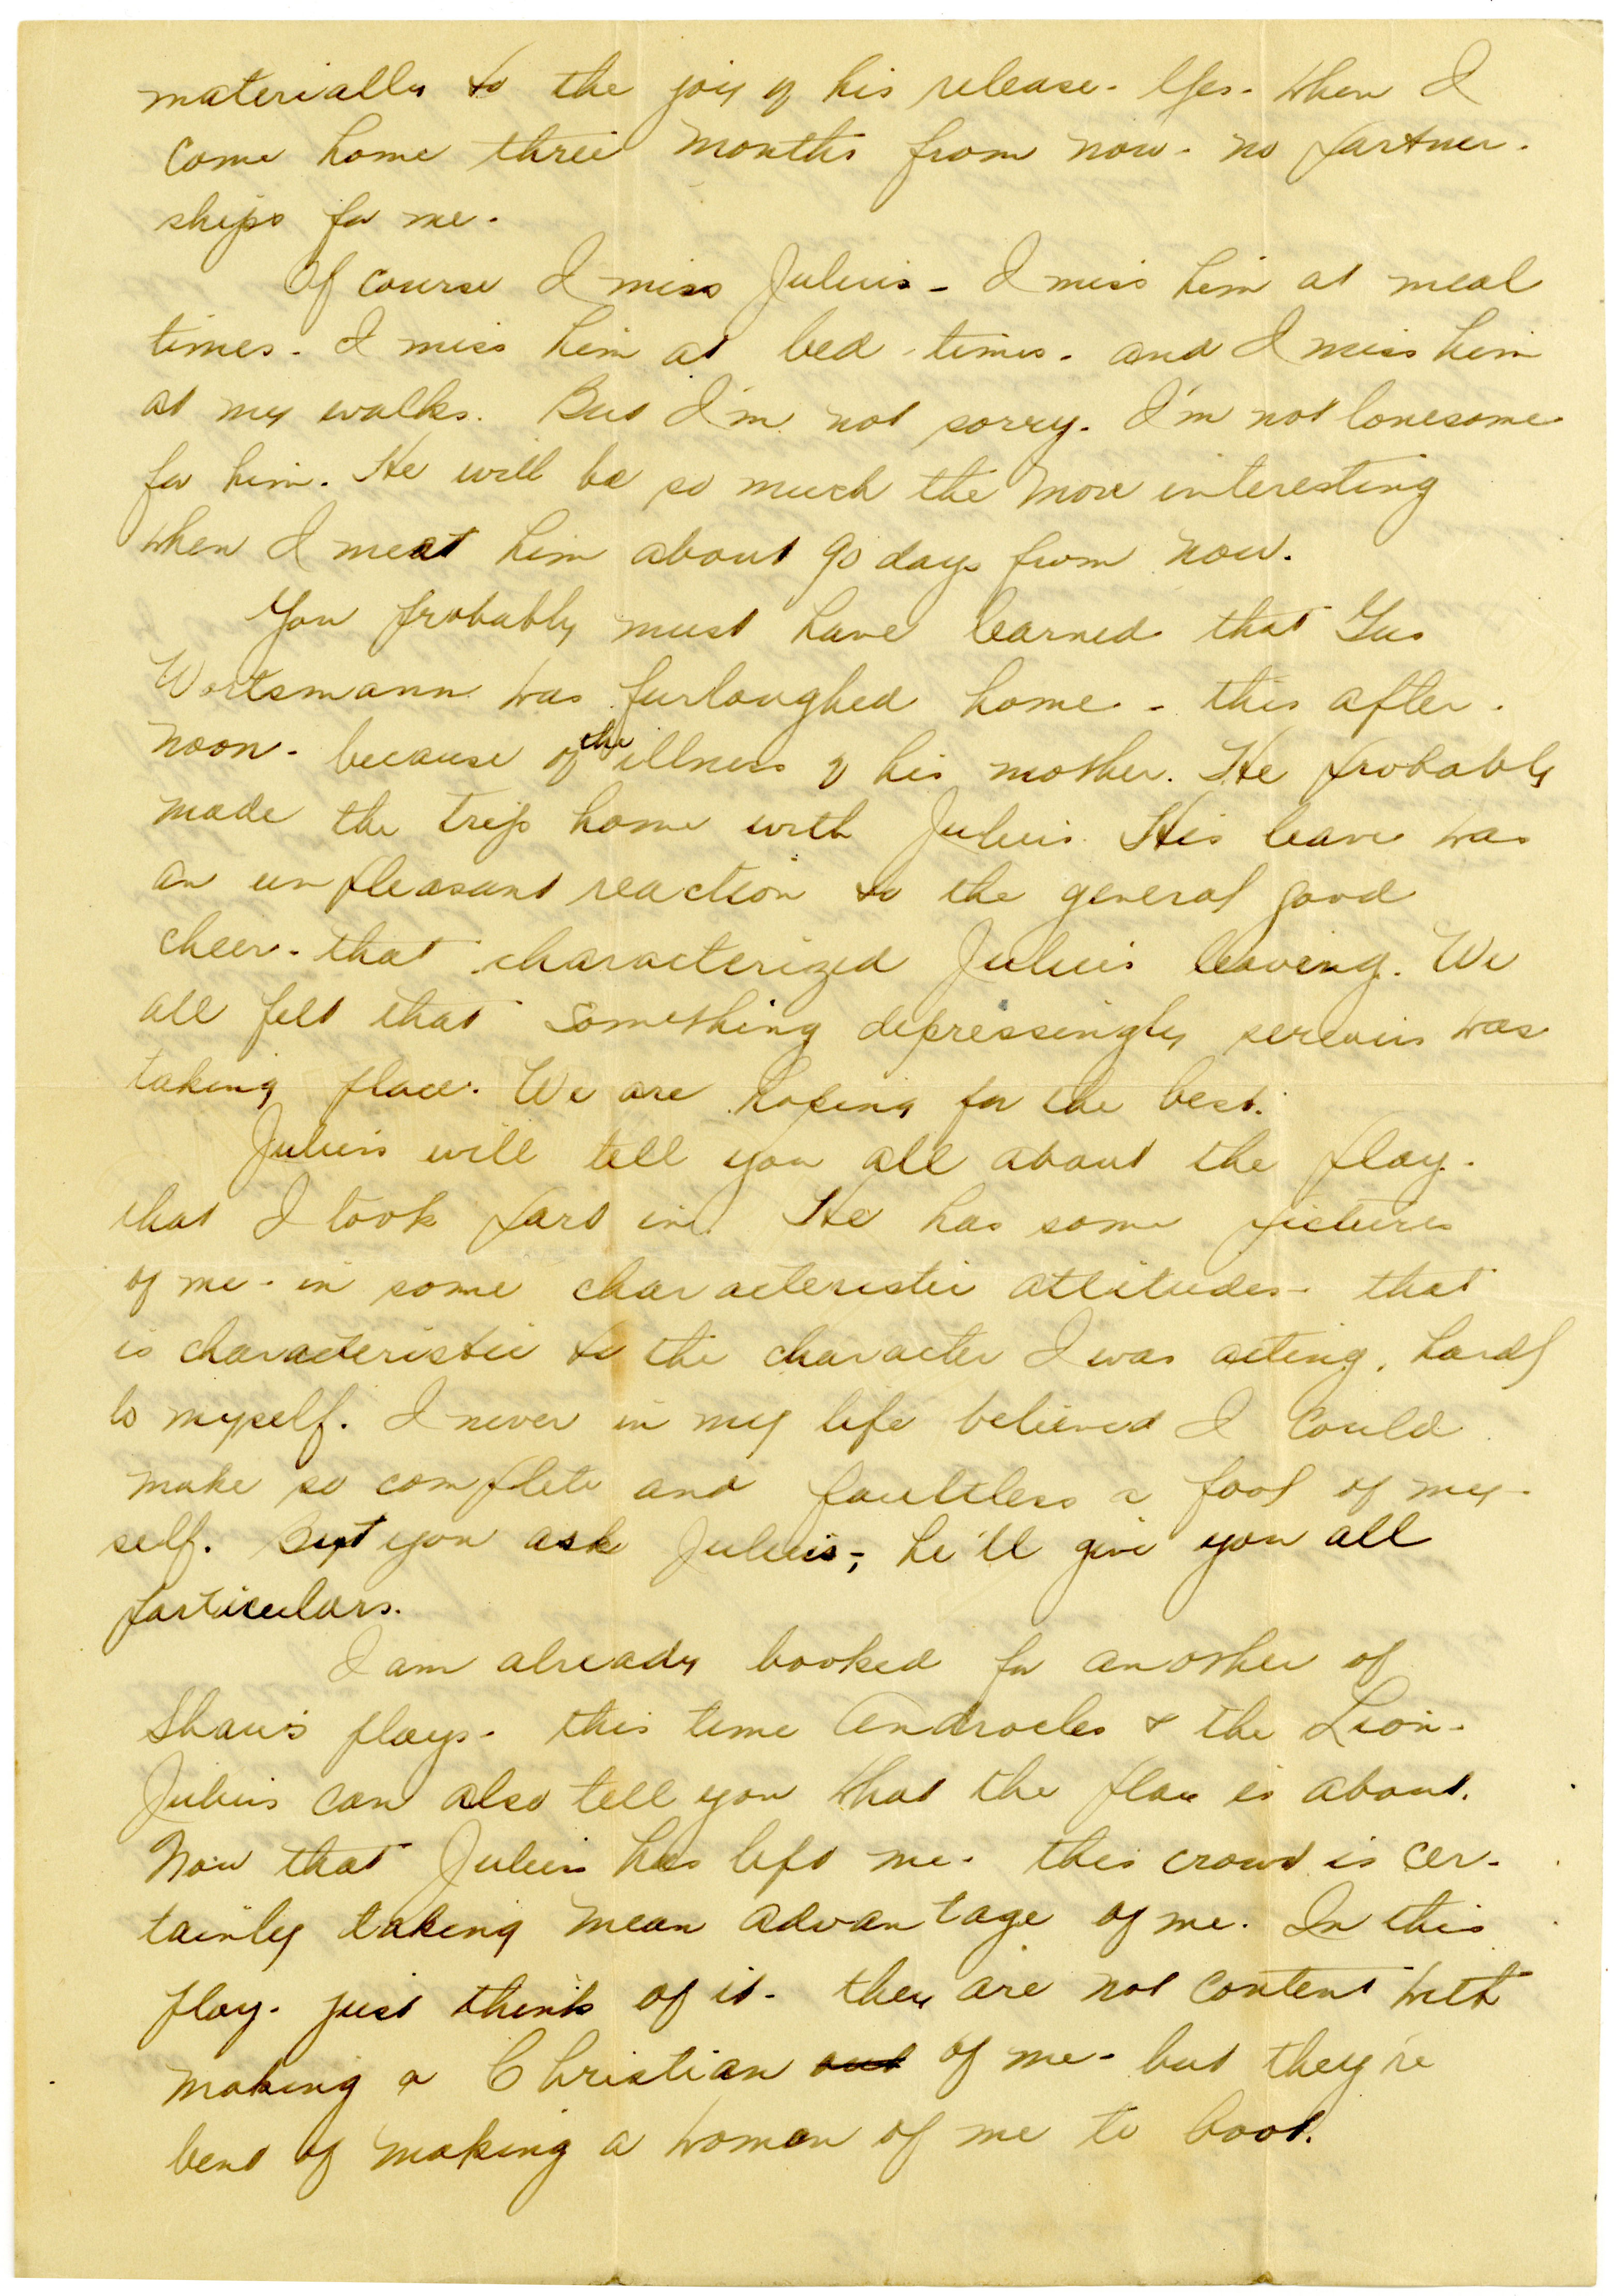 materially to the joy of his release. Yes. When I
come home three months from now - no partner-
ships for me.
Of course I miss Julius - I miss him at meal
times. I miss him at bed-times. and I miss him
at my walks. But I'm not sorry. I'm not lonesome
for him. He will be so much the more interesting
when I meet him about 90 days from now.
You probably must have learned that Gus
Wortsmann was furloughed home - this after-
noon - because of the illness of his mother. He probably
made the trip home with Julius. His leave was
an unpleasant reaction to the general good
cheer - that characterized Julius leaving. We
all felt that something depressingly serious was
taking place. We are hoping for the best.
Julius will tell you all about the play -
that I took part in. He has some pictures
of me - in some characteristic attitudes - that
is characteristic to the character I was acting, hardl
to myself. I never in my life believed I could
make so complete and faultless a fool of my-
self. But you ask Julius -; he'll give you all
particulars.
I am already booked for another of
Shaw's plays - this time Androcles & the Lion -
Julius can also tell you what the play is about.
Now that Julius has left me - this crowd is cer-
tainly taking mean advantage of me. In this
play - just think of it - they are not content with
making a Christian out of me - but they're
bent of making a woman of me to boot.